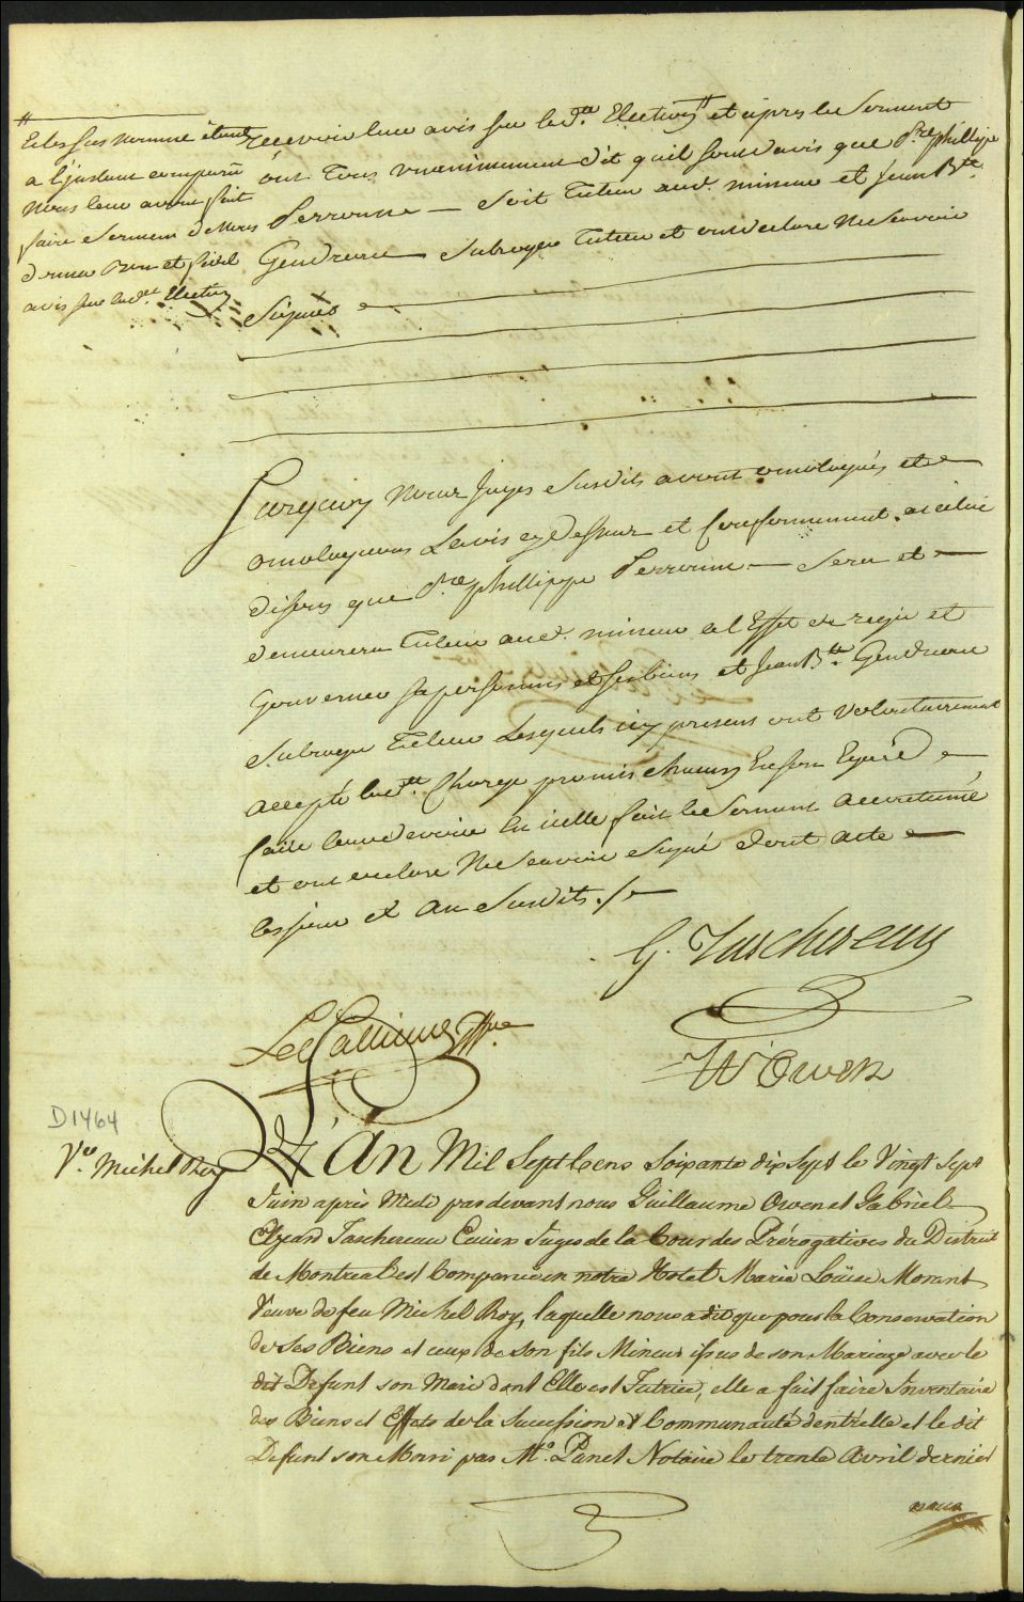 #
Et les sus nommé étant
a l'jnstant comparu
Nous leur avons fait
faire serment de nous
donner bon et fidel
avis sur lad.te Election
recevoir leur avis sur lad.te Election # et apres le Serment
ont Tous unanimement dit qu'il sont d'avis que P.re phillippe
Perronne — soit Tuteur aud. mineur et jean B.te
Gendreau subrogée Tuteur et ont declaré Ne scavoir
Signer
Surquoy Nous Juges susdits avons omologués et
omologuons Lavis cy dessus et Conformement a icelui
disons que P.re phillippe Perronne — sera et
demeurera Tuteur aud. mineur a l'Effet de regir et
gouverner sa personne et ses biens et Jean B.te Gendreau
subrogée Tuteur Lesquels icy presens ont volontairement
accepté lad.te Charge promis chacun En son Egard
faire leur devoir En icelle fait le Serment accoutumé
et ont declaré Ne scavoir signé dont acte
les jour et an susdits ./.
G. Taschereau
W Owen
D1464
V.e Michel Roy
L'An Mil Sept Cens Soixante dix Sept le Vingt Sept
Juin après Midi pardevant nous Guillaume Owen et Gabriel
Elzeard Taschereau Ecuiers Juges de la Cour des Prérogatives du District
de Montreal est Comparue en notre Hotel Marie Loüise Morant
Veuve de feu Michel Roy, laquelle nous a dit que pour la Conservation
de Ses Biens et ceux de son fils Mineur issus de son Mariage avec le
dit Defunt son Mari dont Elle est Tutrice, elle a fait faire Inventaire
des Biens et Effets de la Succession et Communauté d'entr'elle et le dit
Defunt son Mari par M.e Panet Notaire le trente Avril dernier
nous